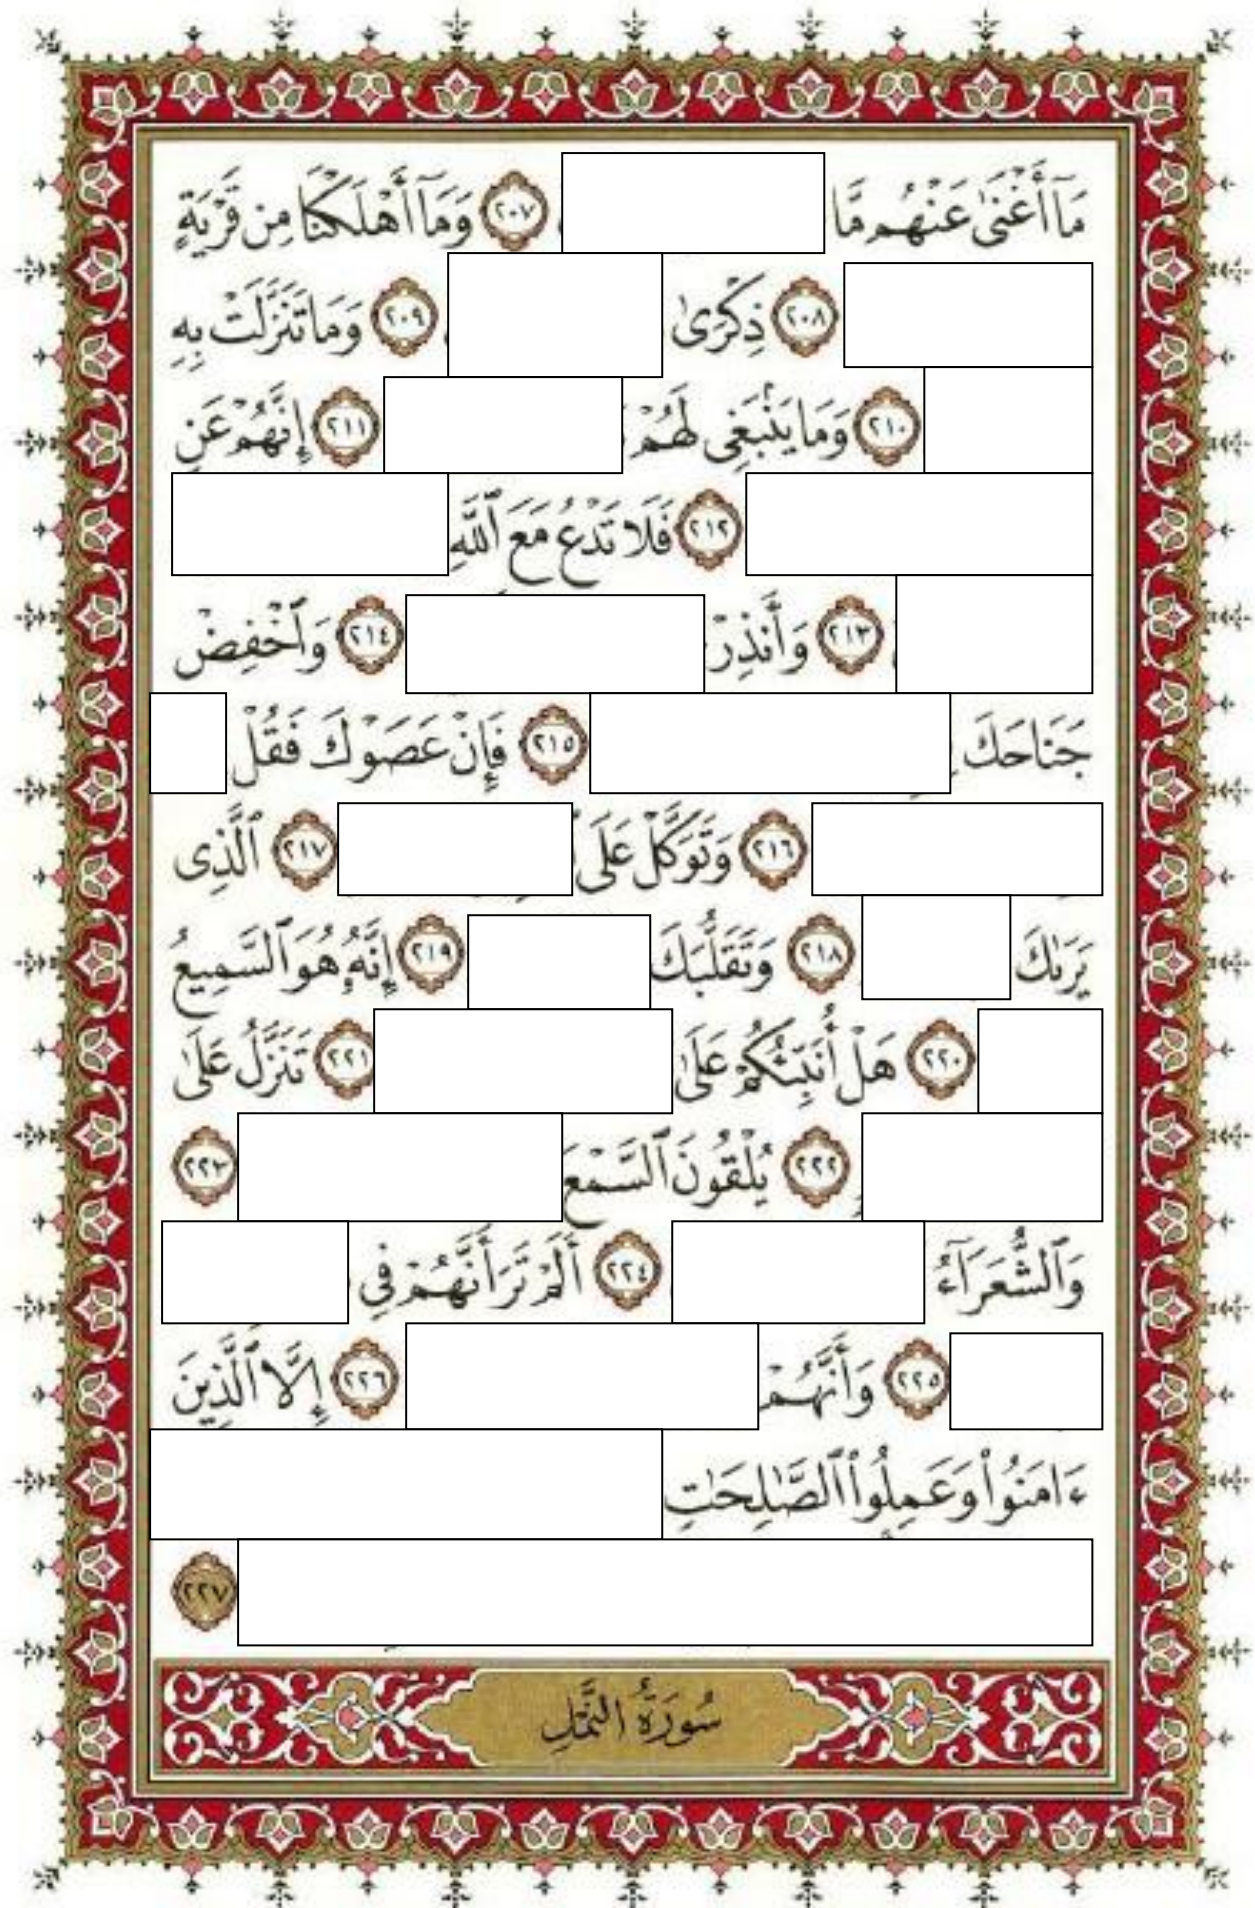 مَآ أَغْنَىٰ عَنْهُم مَّا ٢٠٧ وَمَآ أَهْلَكْنَا مِن قَرْيَةٍ
٢٠٨ ذِكْرَىٰ ٢٠٩ وَمَا تَنَزَّلَتْ بِهِ
٢١٠ وَمَا يَنۢبَغِى لَهُمْ ٢١١ إِنَّهُمْ عَنِ
٢١٢ فَلَا تَدْعُ مَعَ ٱللَّهِ
٢١٣ وَأَنذِرْ ٢١٤ وَٱخْفِضْ
جَنَاحَكَ ٢١٥ فَإِنْ عَصَوْكَ فَقُلْ
٢١٦ وَتَوَكَّلْ عَلَى ٢١٧ ٱلَّذِى
يَرَىٰكَ ٢١٨ وَتَقَلُّبَكَ ٢١٩ إِنَّهُۥ هُوَ ٱلسَّمِيعُ
٢٢٠ هَلْ أُنَبِّئُكُمْ عَلَىٰ ٢٢١ تَنَزَّلُ عَلَىٰ
٢٢٢ يُلْقُونَ ٱلسَّمْعَ ٢٢٣
وَٱلشُّعَرَآءُ ٢٢٤ أَلَمْ تَرَ أَنَّهُمْ فِى
٢٢٥ وَأَنَّهُمْ ٢٢٦ إِلَّا ٱلَّذِينَ
ءَامَنُوا۟ وَعَمِلُوا۟ ٱلصَّـٰلِحَـٰتِ
٢٢٧
سُورَةُ النَّمْلِ